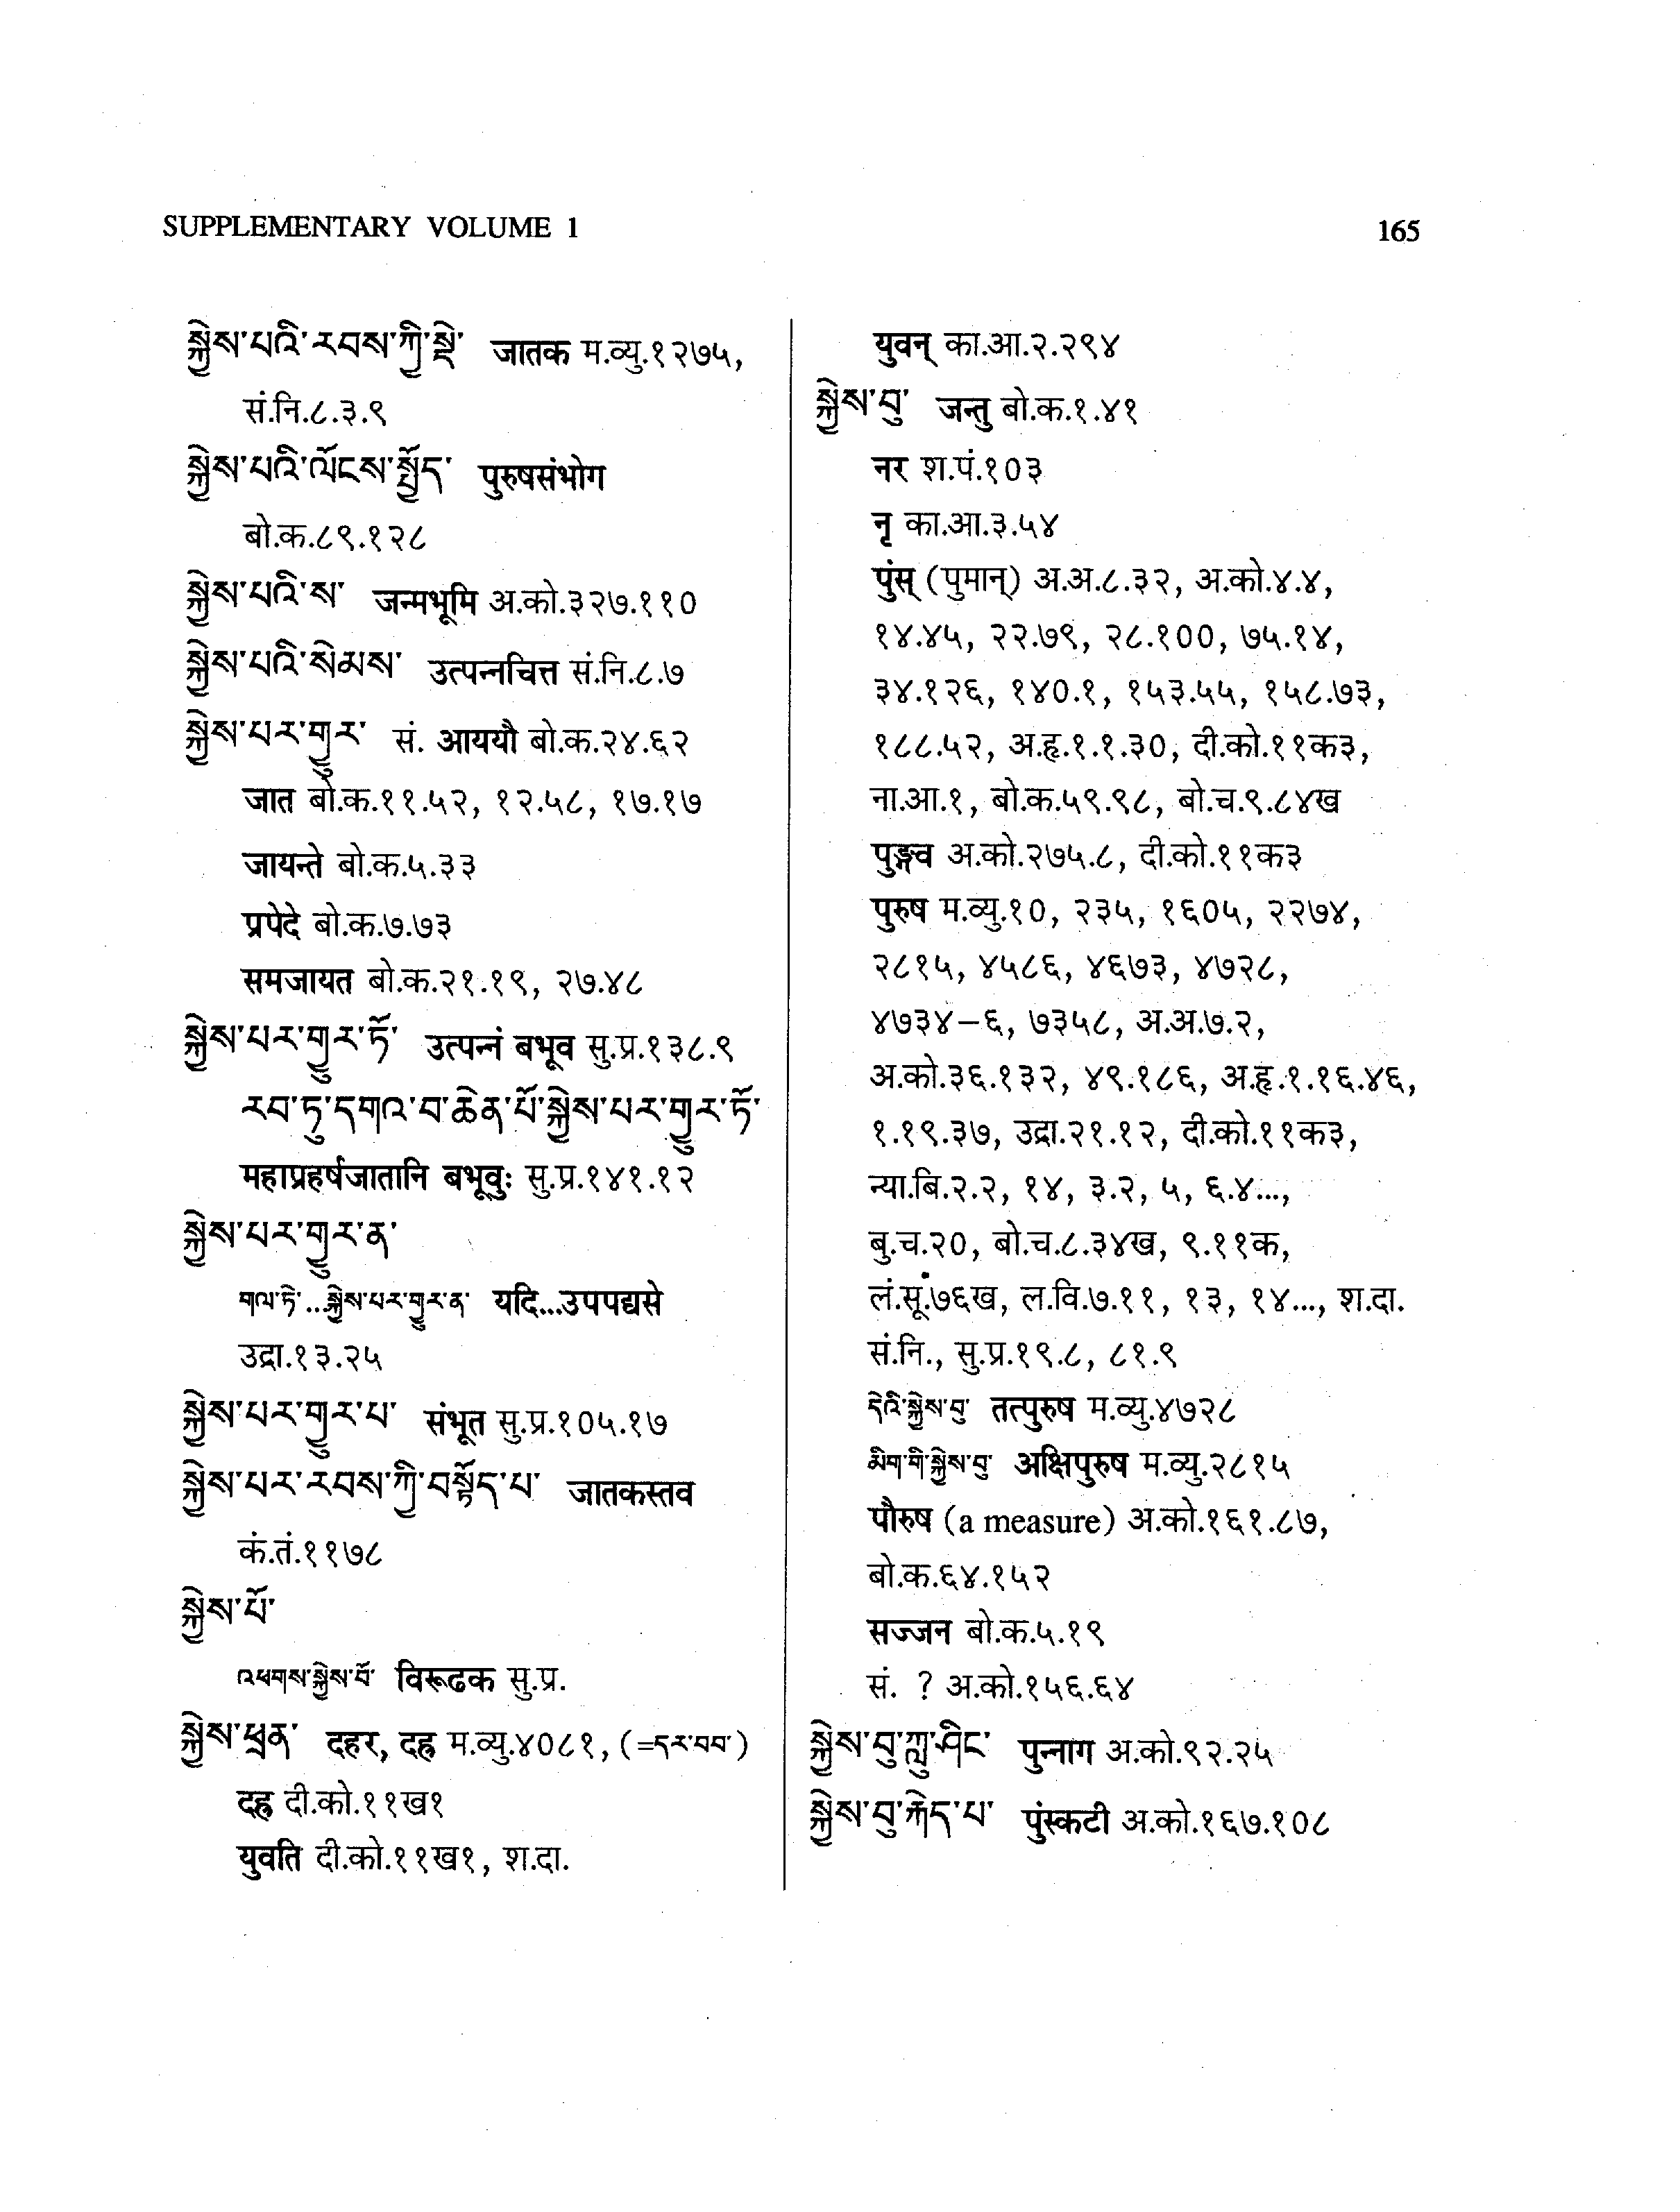 SUPPLEMENTARY VOLUME 1
165
སྐྱེས་པའི་རབས་ཀྱི་སྡེ་ जातक म.व्यु.१२७५,
सं.नि.८.३.९
སྐྱེས་པའི་ལོངས་སྤྱོད་ पुरुषसंभोग
बो.क.८९.१२८
སྐྱེས་པའི་ས་ जन्मभूमि अ.को.३२७.११०
སྐྱེས་པའི་སེམས་ उत्पन्नचित्त सं.नि.८.७
སྐྱེས་པར་གྱུར་ सं. आययौ बो.क.२४.६२
जात बो.क.११.५२, १२.५८, १७.१७
जायन्ते बो.क.५.३३
प्रपेदे बो.क.७.७३
समजायत बो.क.२१.१९, २७.४८
སྐྱེས་པར་གྱུར་ཏོ་ उत्पन्नं बभूव सु.प्र.१३८.९
རབ་ཏུ་དགའ་བ་ཆེན་པོ་སྐྱེས་པར་གྱུར་ཏོ་
महाप्रहर्षजातानि बभूवुः सु.प्र.१४१.१२
སྐྱེས་པར་གྱུར་ན་
གལ་ཏེ་...སྐྱེས་པར་གྱུར་ན་ यदि...उपपद्यसे
उद्रा.१३.२५
སྐྱེས་པར་གྱུར་པ་ संभूत सु.प्र.१०५.१७
སྐྱེས་པར་རབས་ཀྱི་བསྟོད་པ་ जातकस्तव
कं.तं.११७८
སྐྱེས་པོ་
འཕགས་སྐྱེས་པོ་ विरूढक सु.प्र.
སྐྱེས་ཕྲན་ दहर, दह्र म.व्यु.४०८१, (=དར་བབ་)
दह्र दी.को.११ख१
युवति दी.को.११ख१, श.दा.
युवन् का.आ.२.२९४
སྐྱེས་བུ་ जन्तु बो.क.१.४१
नर श.पं.१०३
नृ का.आ.३.५४
पुंस् (पुमान्) अ.अ.८.३२, अ.को.४.४,
१४.४५, २२.७९, २८.१००, ७५.१४,
३४.१२६, १४०.१, १५३.५५, १५८.७३,
१८८.५२, अ.हृ.१.१.३०, दी.को.११क३,
ना.आ.१, बो.क.५९.९८, बो.च.९.८४ख
पुङ्गव अ.को.२७५.८, दी.को.११क३
पुरुष म.व्यु.१०, २३५, १६०५, २२७४,
२८१५, ४५८६, ४६७३, ४७२८,
४७३४–६, ७३५८, अ.अ.७.२,
अ.को.३६.१३२, ४९.१८६, अ.हृ.१.१६.४६,
१.१९.३७, उद्रा.२१.१२, दी.को.११क३,
न्या.बि.२.२, १४, ३.२, ५, ६.४...,
बु.च.२०, बो.च.८.३४ख, ९.११क,
लं.सू.७६ख, ल.वि.७.११, १३, १४..., श.दा.
सं.नि., सु.प्र.१९.८, ८१.९
དེའི་སྐྱེས་བུ་ तत्पुरुष म.व्यु.४७२८
མིག་གི་སྐྱེས་བུ་ अक्षिपुरुष म.व्यु.२८१५
पौरुष (a measure) अ.को.१६१.८७,
बो.क.६४.१५२
सज्जन बो.क.५.१९
सं. ? अ.को.१५६.६४
སྐྱེས་བུ་ཀླུ་ཤིང་ पुन्नाग अ.को.९२.२५
སྐྱེས་བུ་རྐེད་པ་ पुंस्कटी अ.को.१६७.१०८